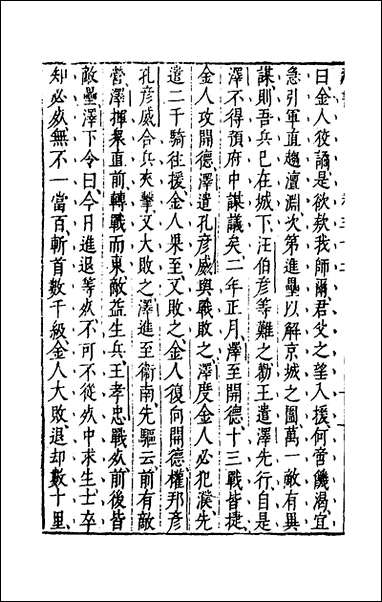 曰金人狡譎是欲欸我師爾君父之望入援何啻饑渴宜
急引軍直趨澶淵次第進壘以解京城之圍萬一敵有異
謀則吾兵已在城下汪伯彥等難之勸王遣澤先行自是
澤不得預府中謀議矣二年正月澤至開德十三戰皆捷
金人攻開德澤遣孔彥威與戰敗之澤度金人必犯濮先
遣二千騎往援金人果至又敗之金人復向開德權邦彥
孔彥威合兵夾擊又大敗之澤進至衛南先驅云前有敵
營澤揮衆直前轉戰而東敵益生兵王孝忠戰死前後皆
敵壘澤下令曰今日進退等死不可不從死中求生士卒
知必死無不一當百斬首數千級金人大敗退却數十里